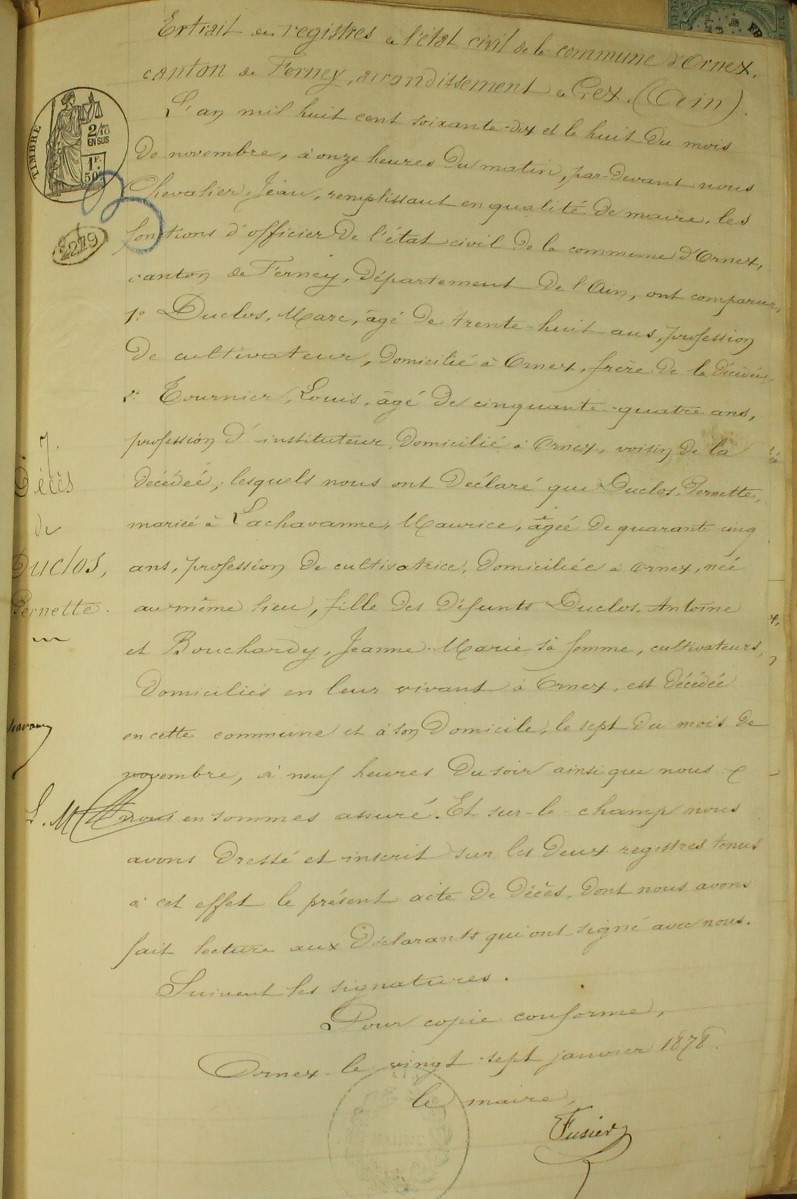 Extrait des registres de l'état civil de la commune d'Ornex,
canton de Ferney, arrondissement de Gex. (Ain).
L'an mil huit cent soixante-dix et le huit du mois
de novembre, à onze heures du matin, par-devant nous
Chevalier, Jean, remplissant en qualité de maire, les
fonctions d'officier de l'état civil de la commune d'Ornex,
canton de Ferney, département de l'Ain, ont comparu,
1° Duclos, Marc, âgé de trente-huit ans, profession
de cultivateur, domicilié à Ornex, frère de la décédée,
2° Tournier, Louis, âgé de cinquante-quatre ans,
profession d'instituteur, domicilié à Ornex, voisin de la
décédeé, lesquels nous ont déclaré que Duclos, Pernette,
mariée à Lachavanne, Maurice, âgée de quarante cinq
ans, profession de cultivatrice, domiciliée à Ornex, née
au même lieu, fille des défunts Duclos, Antoine
et Bouchardy, Jeanne-Marie sa femme, cultivateurs,
domiciliés en leur vivant à Ornex, est décédée
en cette commune et à son domicile, le sept du mois de
novembre, à neuf heures du soir ainsi que nous
nous en sommes assuré. Et sur-le-champ nous
avons dressé et inscrit sur les deux registres tenus
à cet effet le présent acte de décès, dont nous avons
fait lecture aux déclarants qui ont signé avec nous.
Suivent les signatures.
Pour copie conforme,
Ornex le vingt-sept janvier 1878.
le maire,
Fusier
TIMBRE
2/10
EN SUS
1F.
50c
2219
7.
Décès
de
Duclos,
Pernette.
L. M